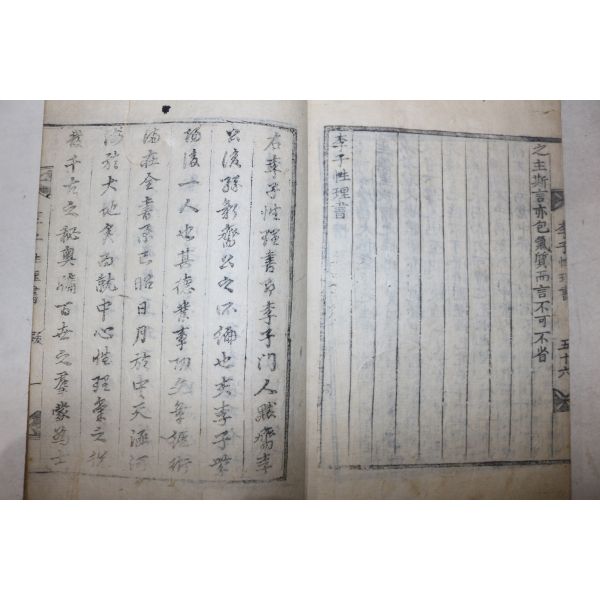 李子性理書 五十六
之主斯言亦包氣質而言不可不省
李子性理書
右李子性理書卽李子門人默齋李
公後孫齋公之所編也夫李子紫
陽後一人也其德業事功文章經術
備在全書昭日月於中天涵河
海於大地矣而就中心性理氣之說
發千古之秘奧牖百世之羣蒙爲士
李子性理書 跋 一